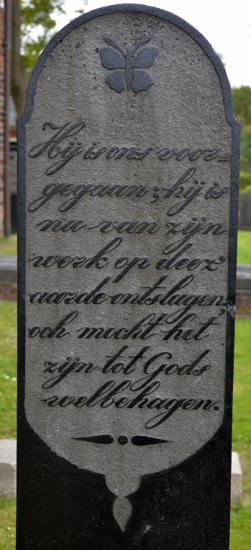 Hij is ons voor-
gegaan; hij is
nu van zijn
werk op deez'
aarde ontslagen,
och mocht het
zijn tot Gods
welbehagen.